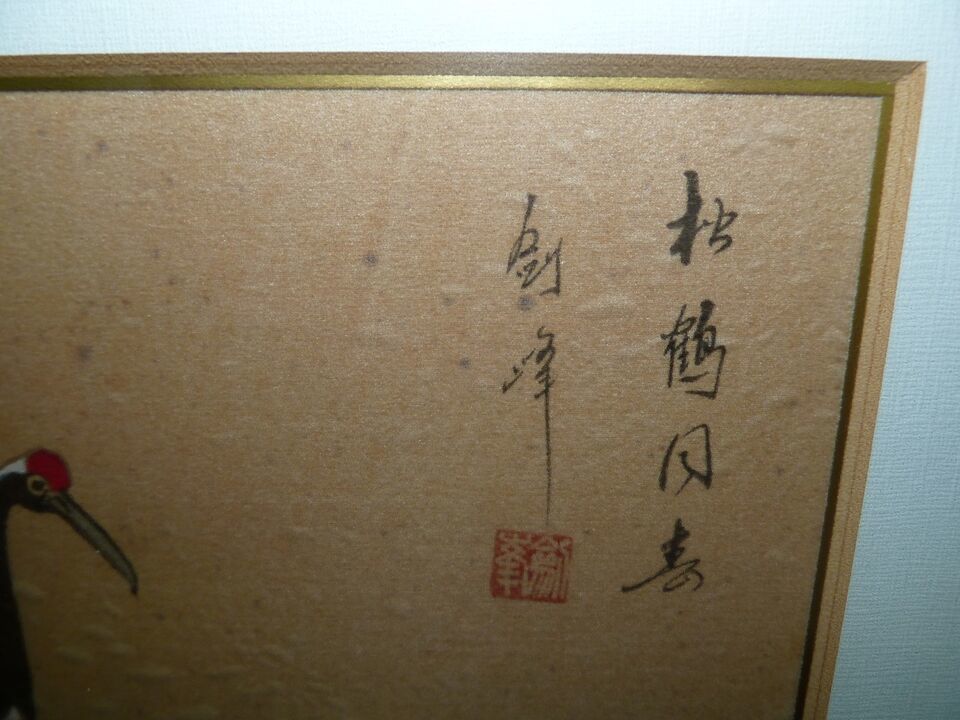 松鶴同春
劍峰
劍峰